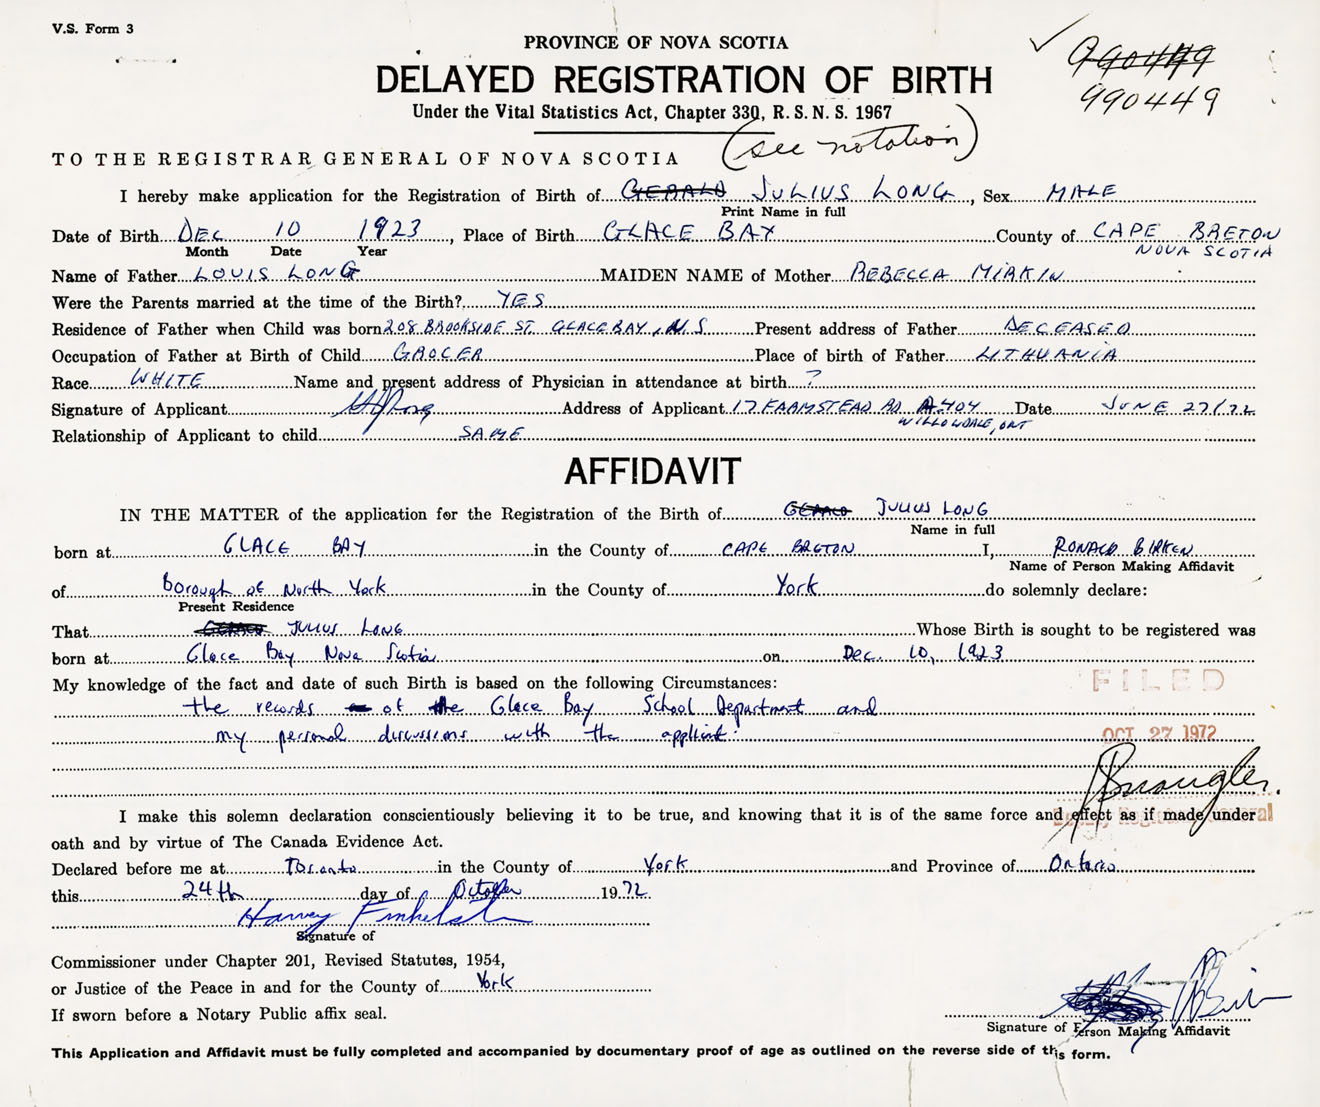 V.S. Form 3
PROVINCE OF NOVA SCOTIA
DELAYED REGISTRATION OF BIRTH
990449
990449
Under the Vital Statistics Act, Chapter 330, R. S. N. S. 1967
(see notation)
TO THE REGISTRAR GENERAL OF NOVA SCOTIA
I hereby make application for the Registration of Birth of GERALD JULIUS LONG, Sex MALE
Print Name in full
Date of Birth DEC 10 1923, Place of Birth GLACE BAY County of CAPE BRETON
Month Date Year NOVA SCOTIA
Name of Father LOUIS LONG MAIDEN NAME of Mother REBECCA MIRKIN
Were the Parents married at the time of the Birth? YES
Residence of Father when Child was born 208 BROOKSIDE ST. GLACE BAY, N.S Present address of Father DECEASED
Occupation of Father at Birth of Child GROCER Place of birth of Father LITHUANIA
Race WHITE Name and present address of Physician in attendance at birth ?
Signature of Applicant Address of Applicant 17 FARMSTEAD RD A.404 Date JUNE 27/72
WILLOWDALE, ONT
Relationship of Applicant to child SAME
AFFIDAVIT
IN THE MATTER of the application for the Registration of the Birth of GERALD JULIUS LONG
Name in full
born at GLACE BAY in the County of CAPE BRETON I, RONALD BIRKEN
Name of Person Making Affidavit
of Borough of North York in the County of York do solemnly declare:
Present Residence
That GERALD JULIUS LONG Whose Birth is sought to be registered was
born at Glace Bay Nova Scotia on Dec. 10, 1923
My knowledge of the fact and date of such Birth is based on the following Circumstances:
FILED
the records of the Glace Bay School Department and
my personal discussions with the applicant.
OCT 27 1972
I make this solemn declaration conscientiously believing it to be true, and knowing that it is of the same force and effect as if made under
oath and by virtue of The Canada Evidence Act.
Declared before me at Toronto in the County of York and Province of Ontario
this 24th day of October 1972
Harvey Finkelstein
Signature of
Commissioner under Chapter 201, Revised Statutes, 1954,
or Justice of the Peace in and for the County of York
If sworn before a Notary Public affix seal.
Signature of Person Making Affidavit
This Application and Affidavit must be fully completed and accompanied by documentary proof of age as outlined on the reverse side of this form.